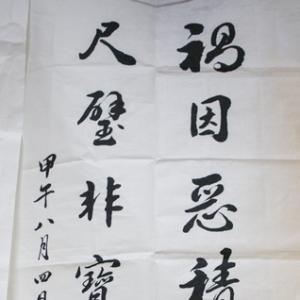 祸因恶積
尺璧非寶
甲午八月四日